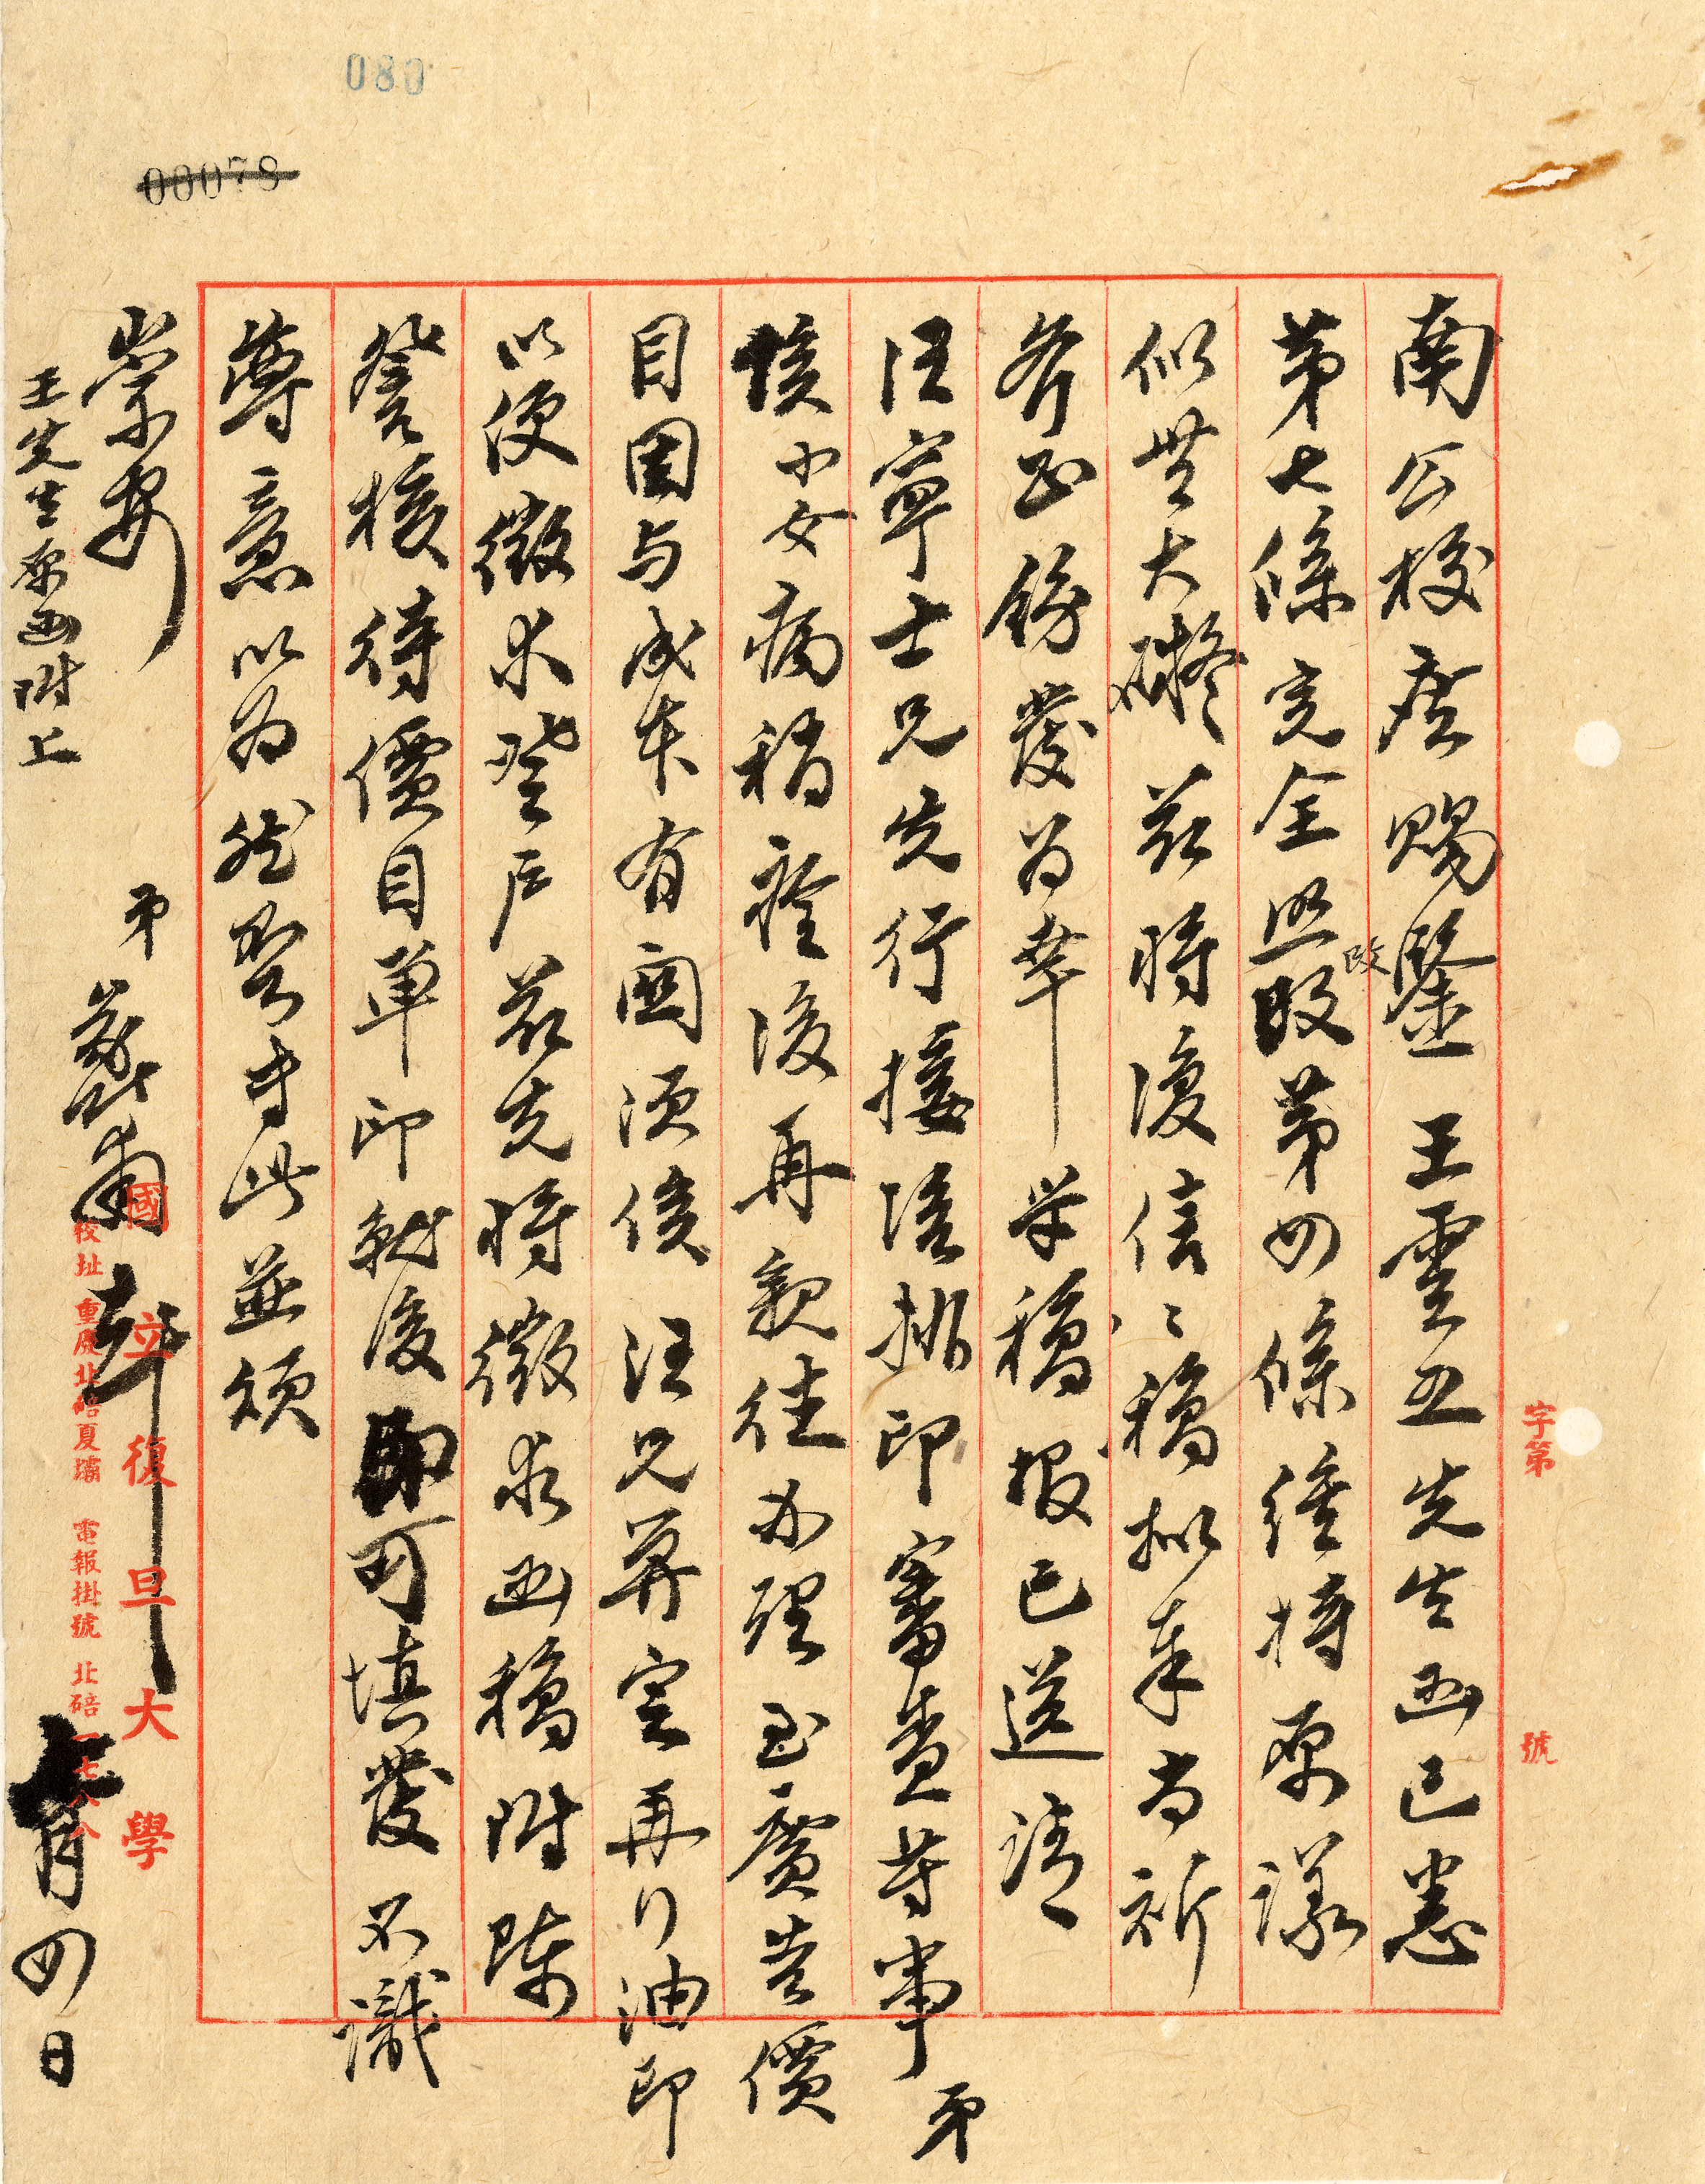 080
00078
字第 號
南公校座賜鑒 王雲五先生函已悉
第七條完全照改第四條維持原議
改
似無大礙茲將復信之稿拟奉尚祈
斧正飭發为幸 学稿报已送请
汪寧士兄先行接洽排印審查等事弟
俟小女病稍痊後再親往办理至廣告價
目因与成本有關須俟汪兄算定再行油印
以便徵求登戶茲先將徵求函稿附陳
詧核待價目單印就後即可填發不識
尊意以为然否专此並頌
崇安
弟 蔚南 拜
七月四日
王先生原函附上
國立復旦大學
校址 重慶北碚夏壩 電報掛號 北碚